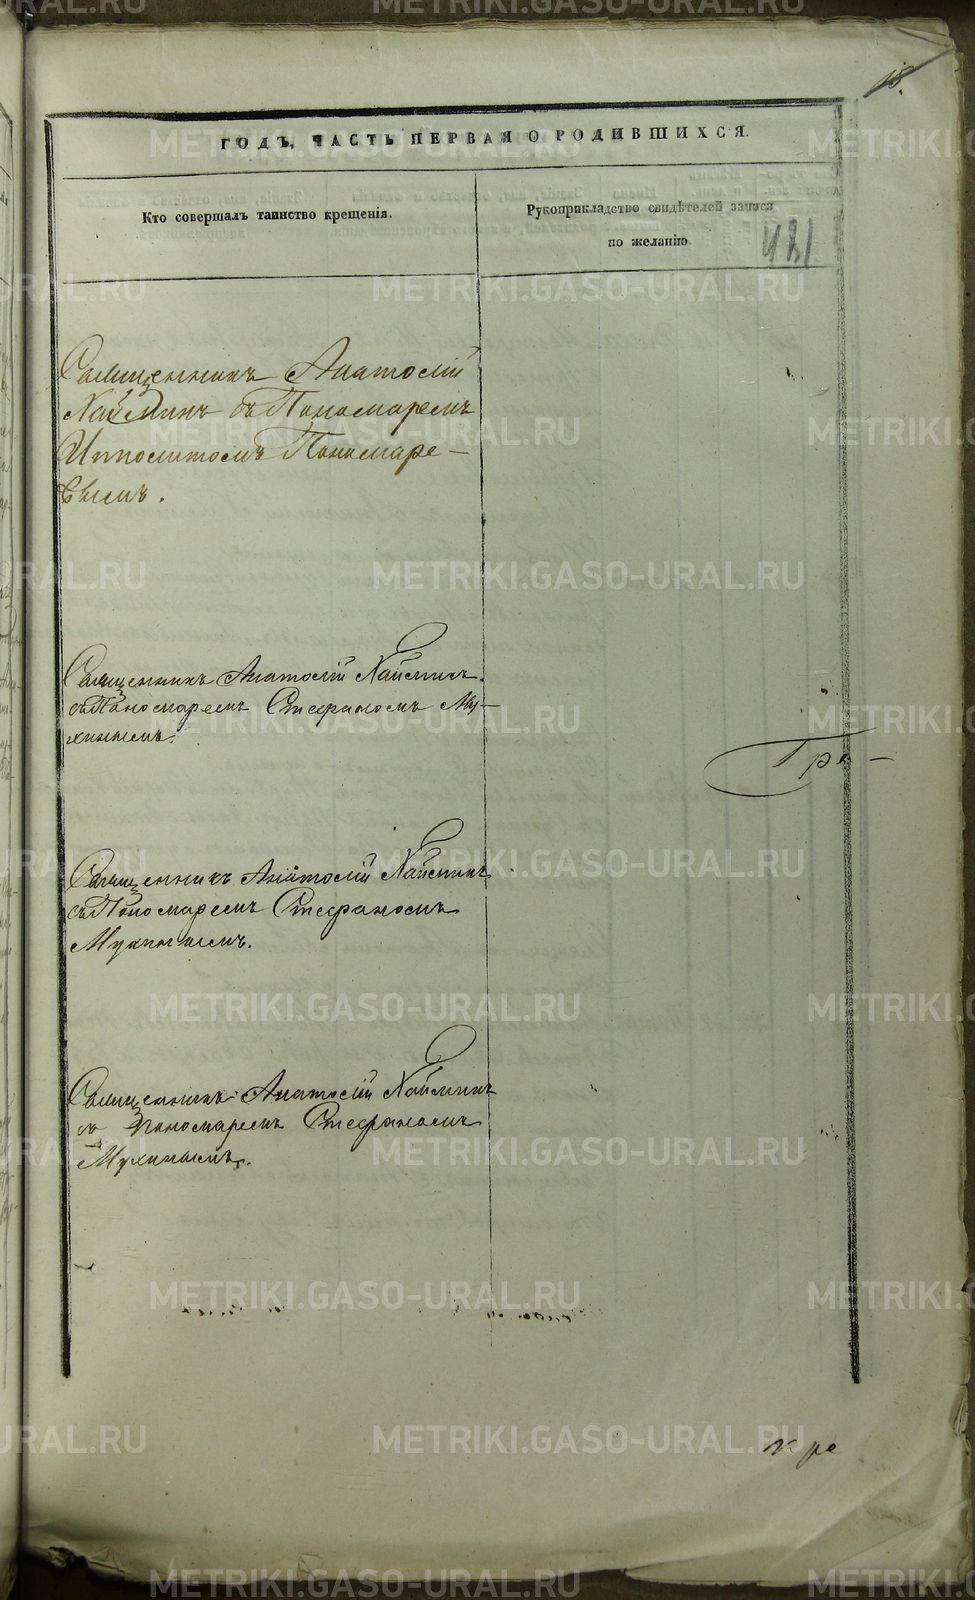 18.
ГОДЪ, ЧАСТЬ ПЕРВАЯ О РОДИВШИХСЯ.
Кто совершалъ таинство крещенія.
Рукоприкладство свидѣтелей записи
по желанію
421
Священникъ Анатолій
Хайминъ съ Пономаремъ
Ипполитомъ Пономаре-
вымъ.
Священникъ Анатолій Хайминъ
съ Пономаремъ Стефаномъ Му-
хинымъ.
Гра-
Священникъ Анатолій Хайминъ
съ Пономаремъ Стефаномъ
Мухинымъ.
Священникъ Анатолій Хайминъ
съ Пономаремъ Стефаномъ
Мухинымъ.
METRIKI.GASO-URAL.RU